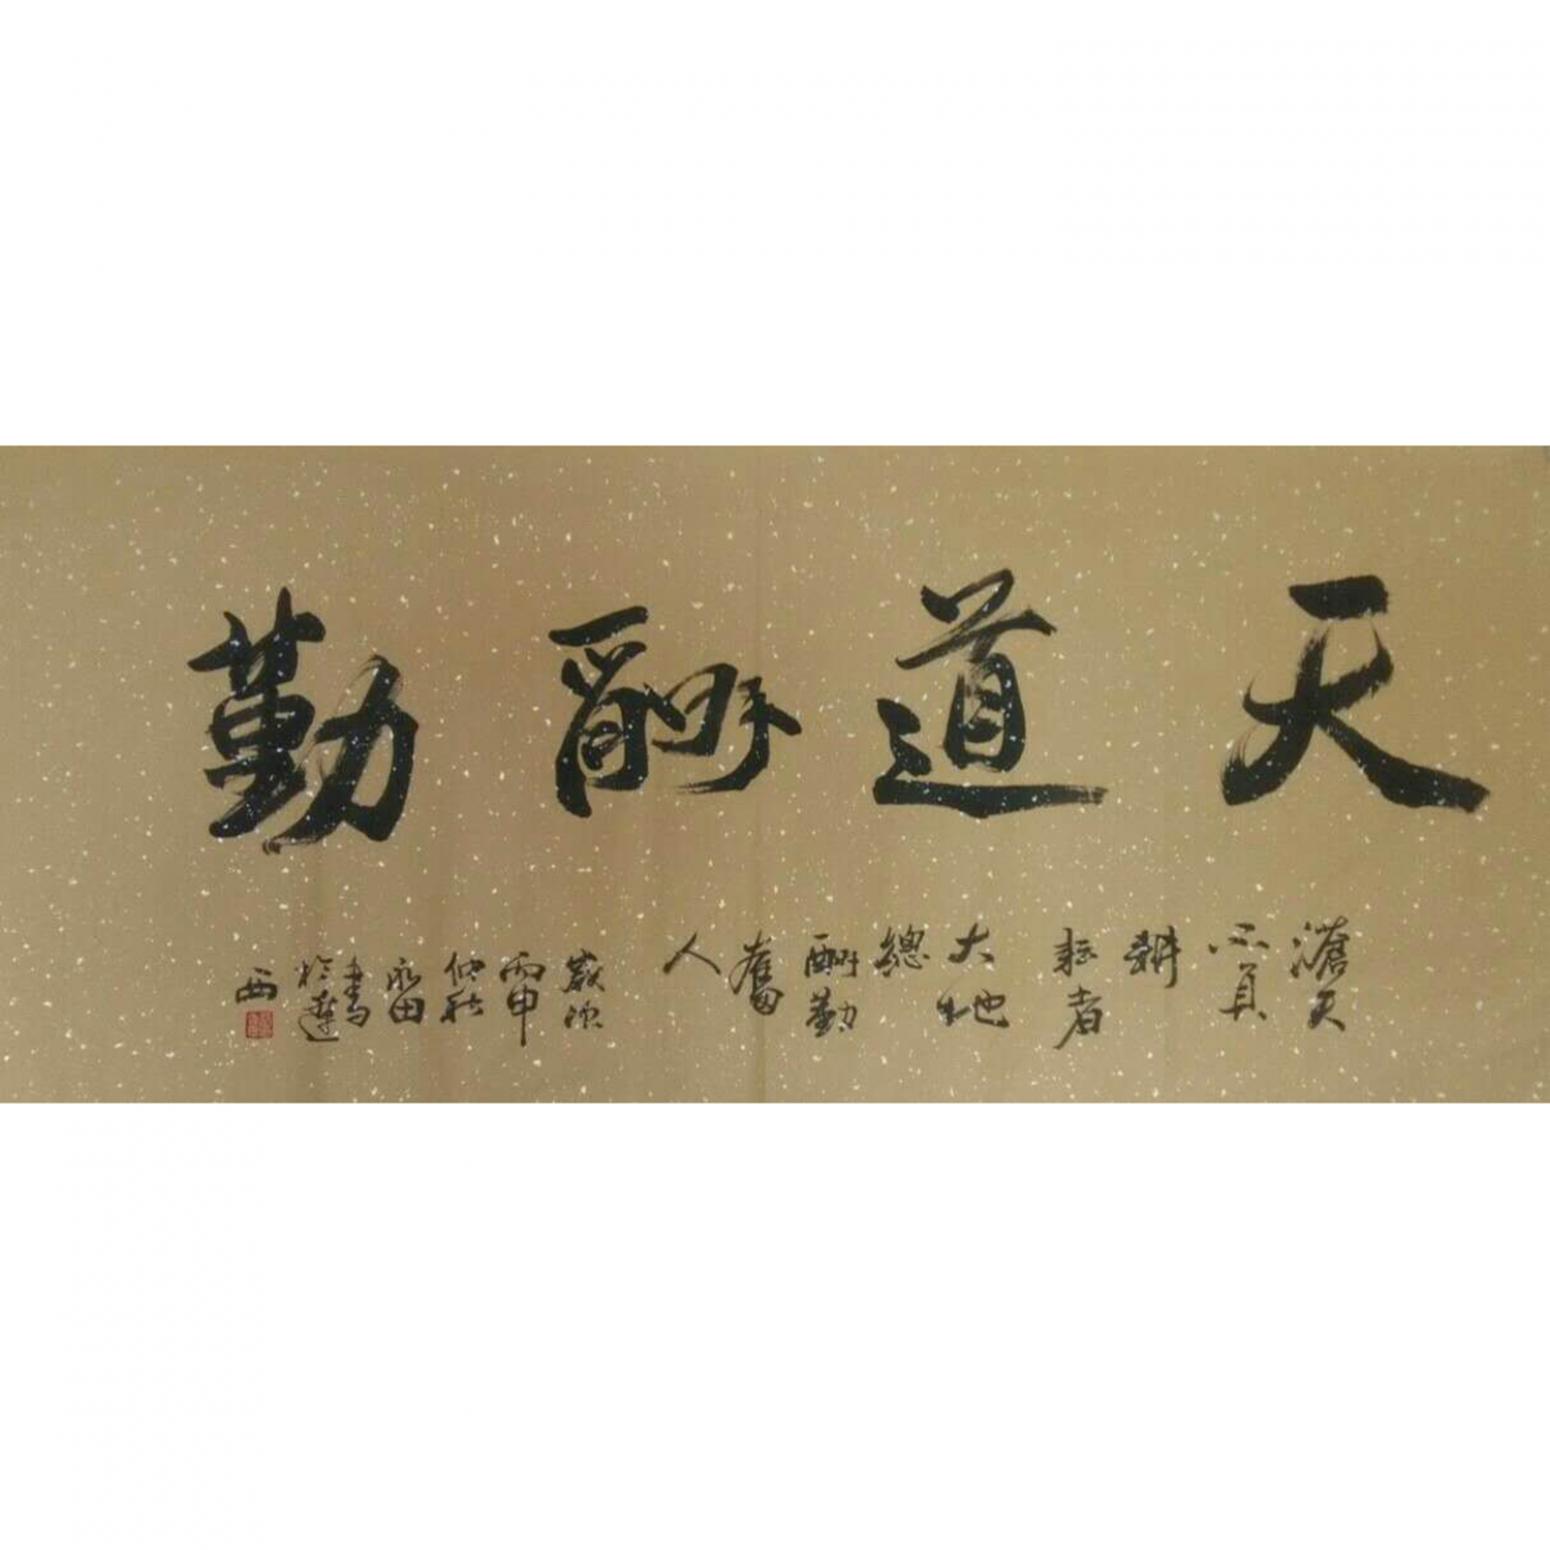 天道酬勤
滄天
不負
耕
耘者
大地
總
酬勤
奮
人
歲次
丙申
仲秋
永田
書
於遼
西